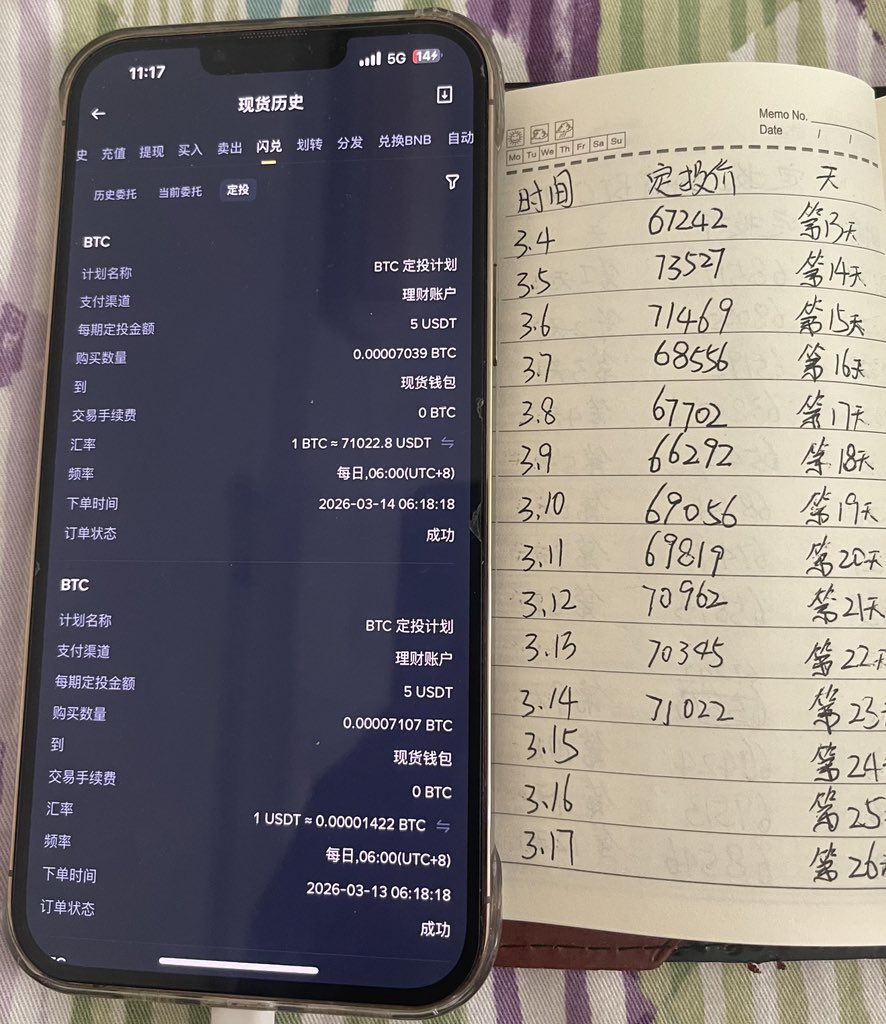 11:17
5G 14
现货历史
史 充值 提现 买入 卖出 闪兑 划转 分发 兑换BNB 自动
历史委托 当前委托 定投
BTC
计划名称 BTC 定投计划
支付渠道 理财账户
每期定投金额 5 USDT
购买数量 0.00007039 BTC
到 现货钱包
交易手续费 0 BTC
汇率 1 BTC ≈ 71022.8 USDT
频率 每日,06:00(UTC+8)
下单时间 2026-03-14 06:18:18
订单状态 成功
BTC
计划名称 BTC 定投计划
支付渠道 理财账户
每期定投金额 5 USDT
购买数量 0.00007107 BTC
到 现货钱包
交易手续费 0 BTC
汇率 1 USDT ≈ 0.00001422 BTC
频率 每日,06:00(UTC+8)
下单时间 2026-03-13 06:18:18
订单状态 成功
Memo No.
Date / /
Mo Tu We Th Fr Sa Su
时间 定投价 天
3.4 67242 第13天
3.5 73527 第14天
3.6 71469 第15天
3.7 68556 第16天
3.8 67702 第17天
3.9 66292 第18天
3.10 69056 第19天
3.11 69819 第20天
3.12 70962 第21天
3.13 70345 第22天
3.14 71022 第23天
3.15 第24
3.16 第25
3.17 第26天